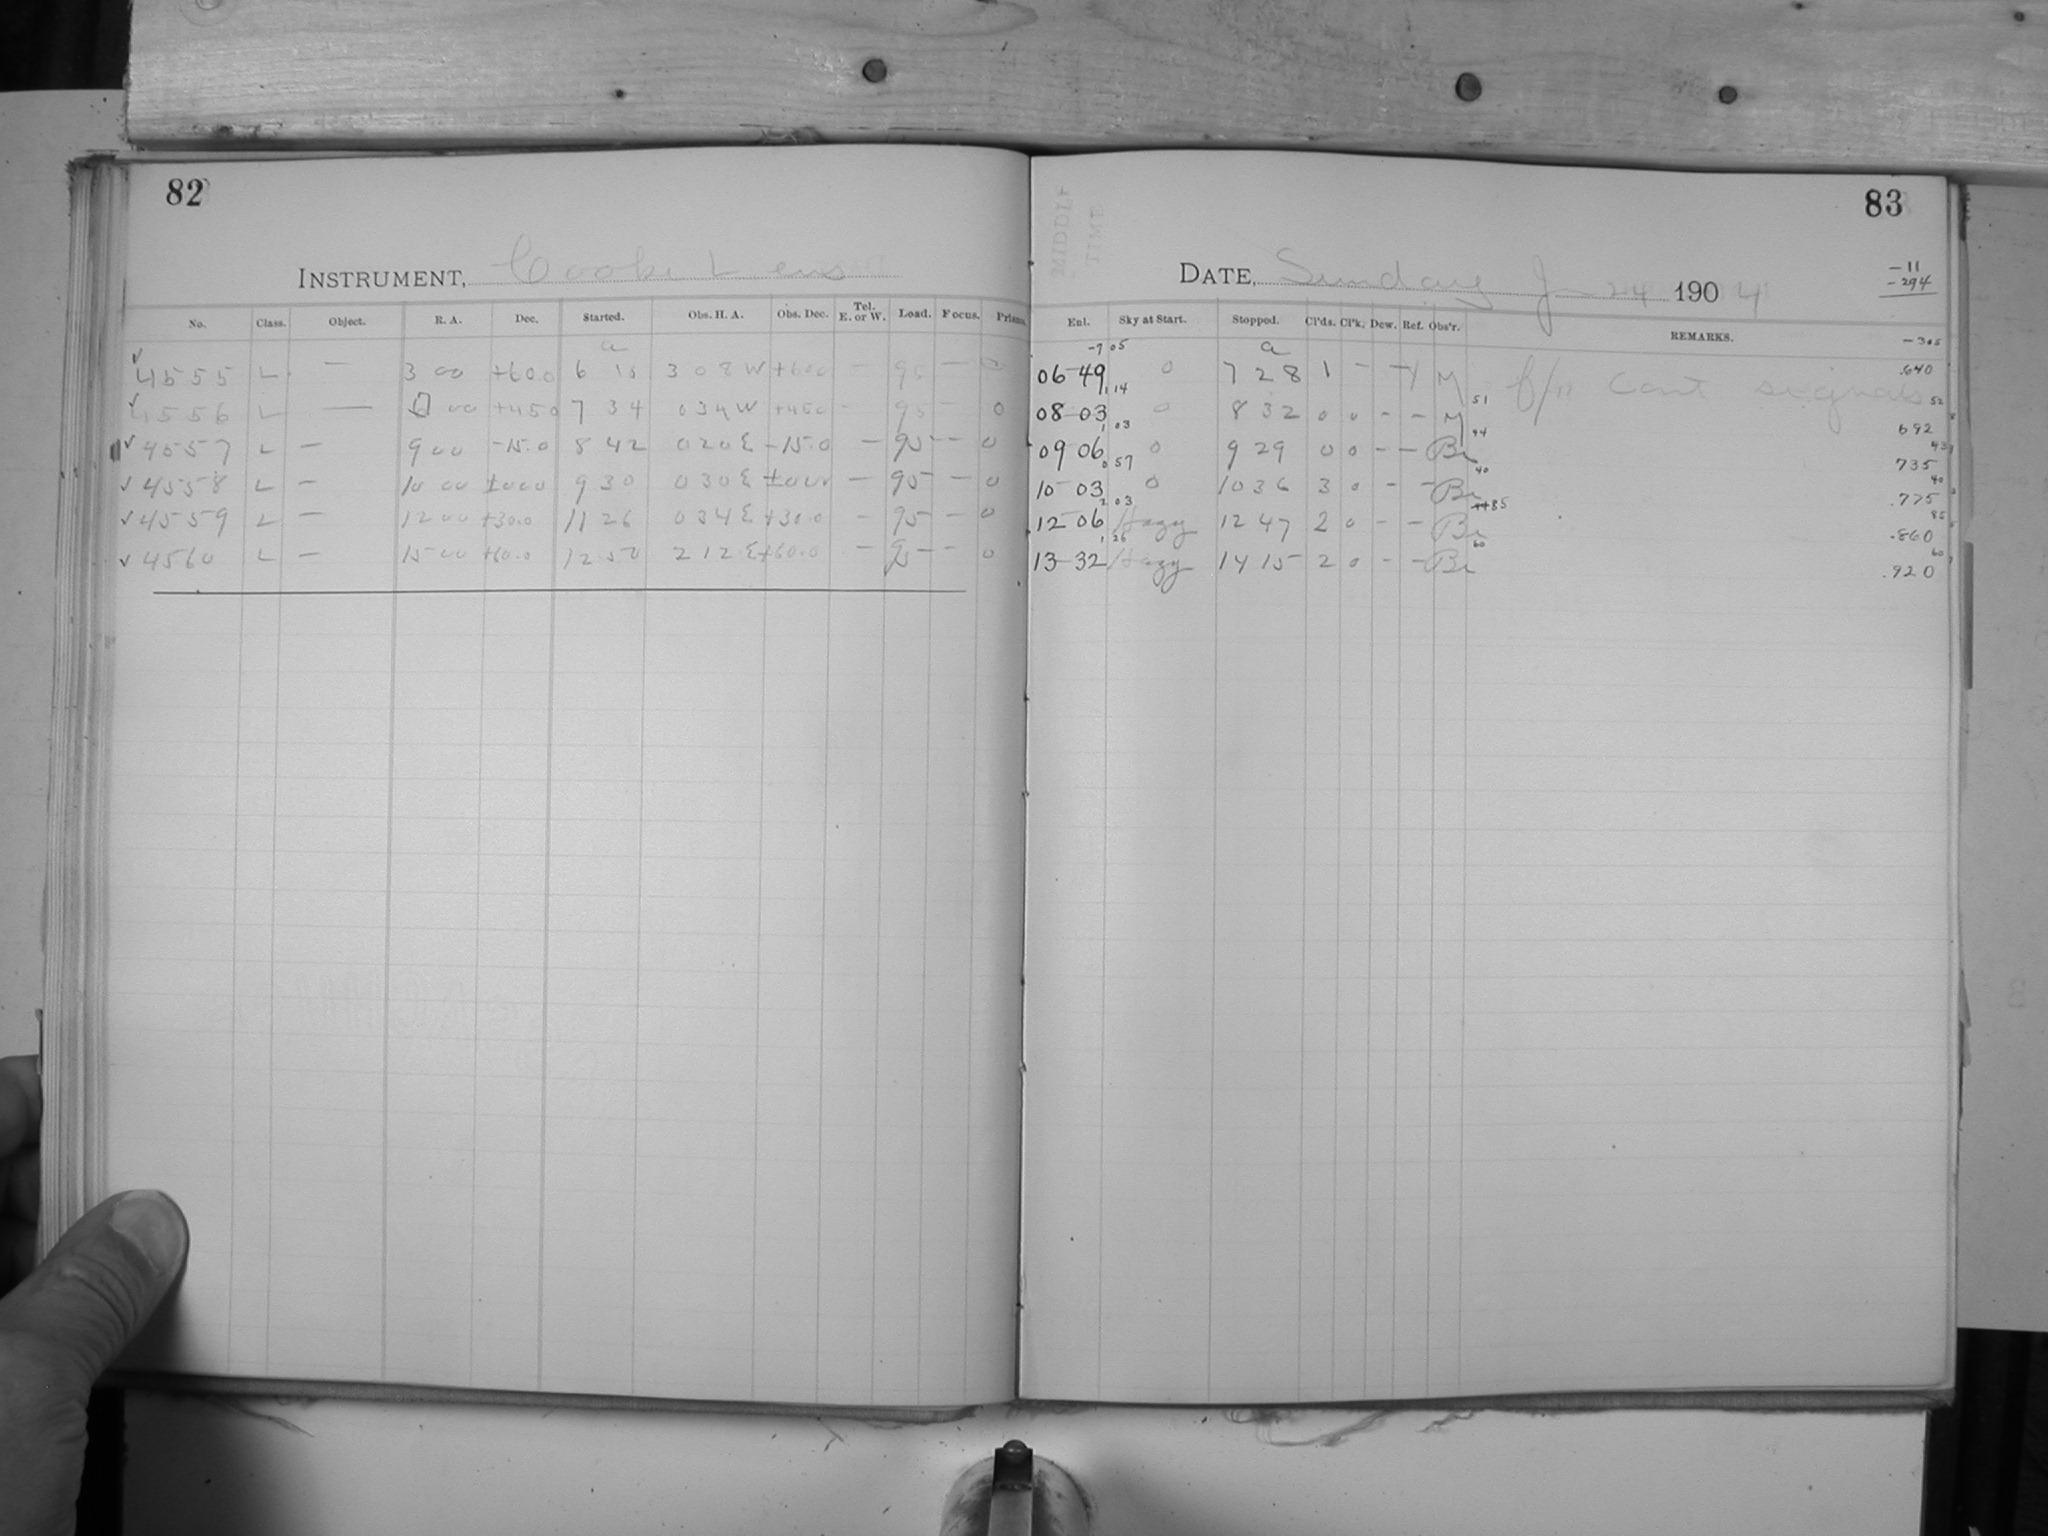 82
INSTRUMENT, Cooke Lens
No. Class. Object. R. A. Dec. Started. Obs. H. A. Obs. Dec. Tel. E. or W. Load. Focus. Prisms.
a
✓ 4555 L — 3 00 +60.0 6 10 3 08 W +60.0 — 95 — 0
✓ 4556 L — 00 +45.0 7 34 0 34 W +45.0 — 95 — 0
✓ 4557 L — 9 00 -15.0 8 42 0 20 E -15.0 — 95 — 0
✓ 4558 L — 10 00 +00.0 9 30 0 30 E +00.0 — 95 — 0
✓ 4559 L — 12 00 +30.0 11 26 0 34 E +30.0 — 95 — 0
✓ 4560 L — 15 00 +60.0 12 50 2 12 E +60.0 — 95 — 0
83
MIDDLE
TIME
DATE, Sunday 24 1904
-11
-294
-305
Enl. Sky at Start. Stopped. Cl'ds. Cl'k. Dew. Ref. Obs'r. REMARKS.
-7 05 a
06-49 0 7 28 1 - - M f/11 Cont signals .640
1 14 51 52
08-03 0 8 32 0 0 - - M 692
1 03 44 43
09 06 0 9 29 0 0 - - Br 735
0 57 40 40
10-03 0 10 36 3 0 - - Br .775
2 03 85 85
12-06 Hazy 12 47 2 0 - - Br .860
1 26 60 60
13-32 Hazy 14 15 2 0 - - Br .920